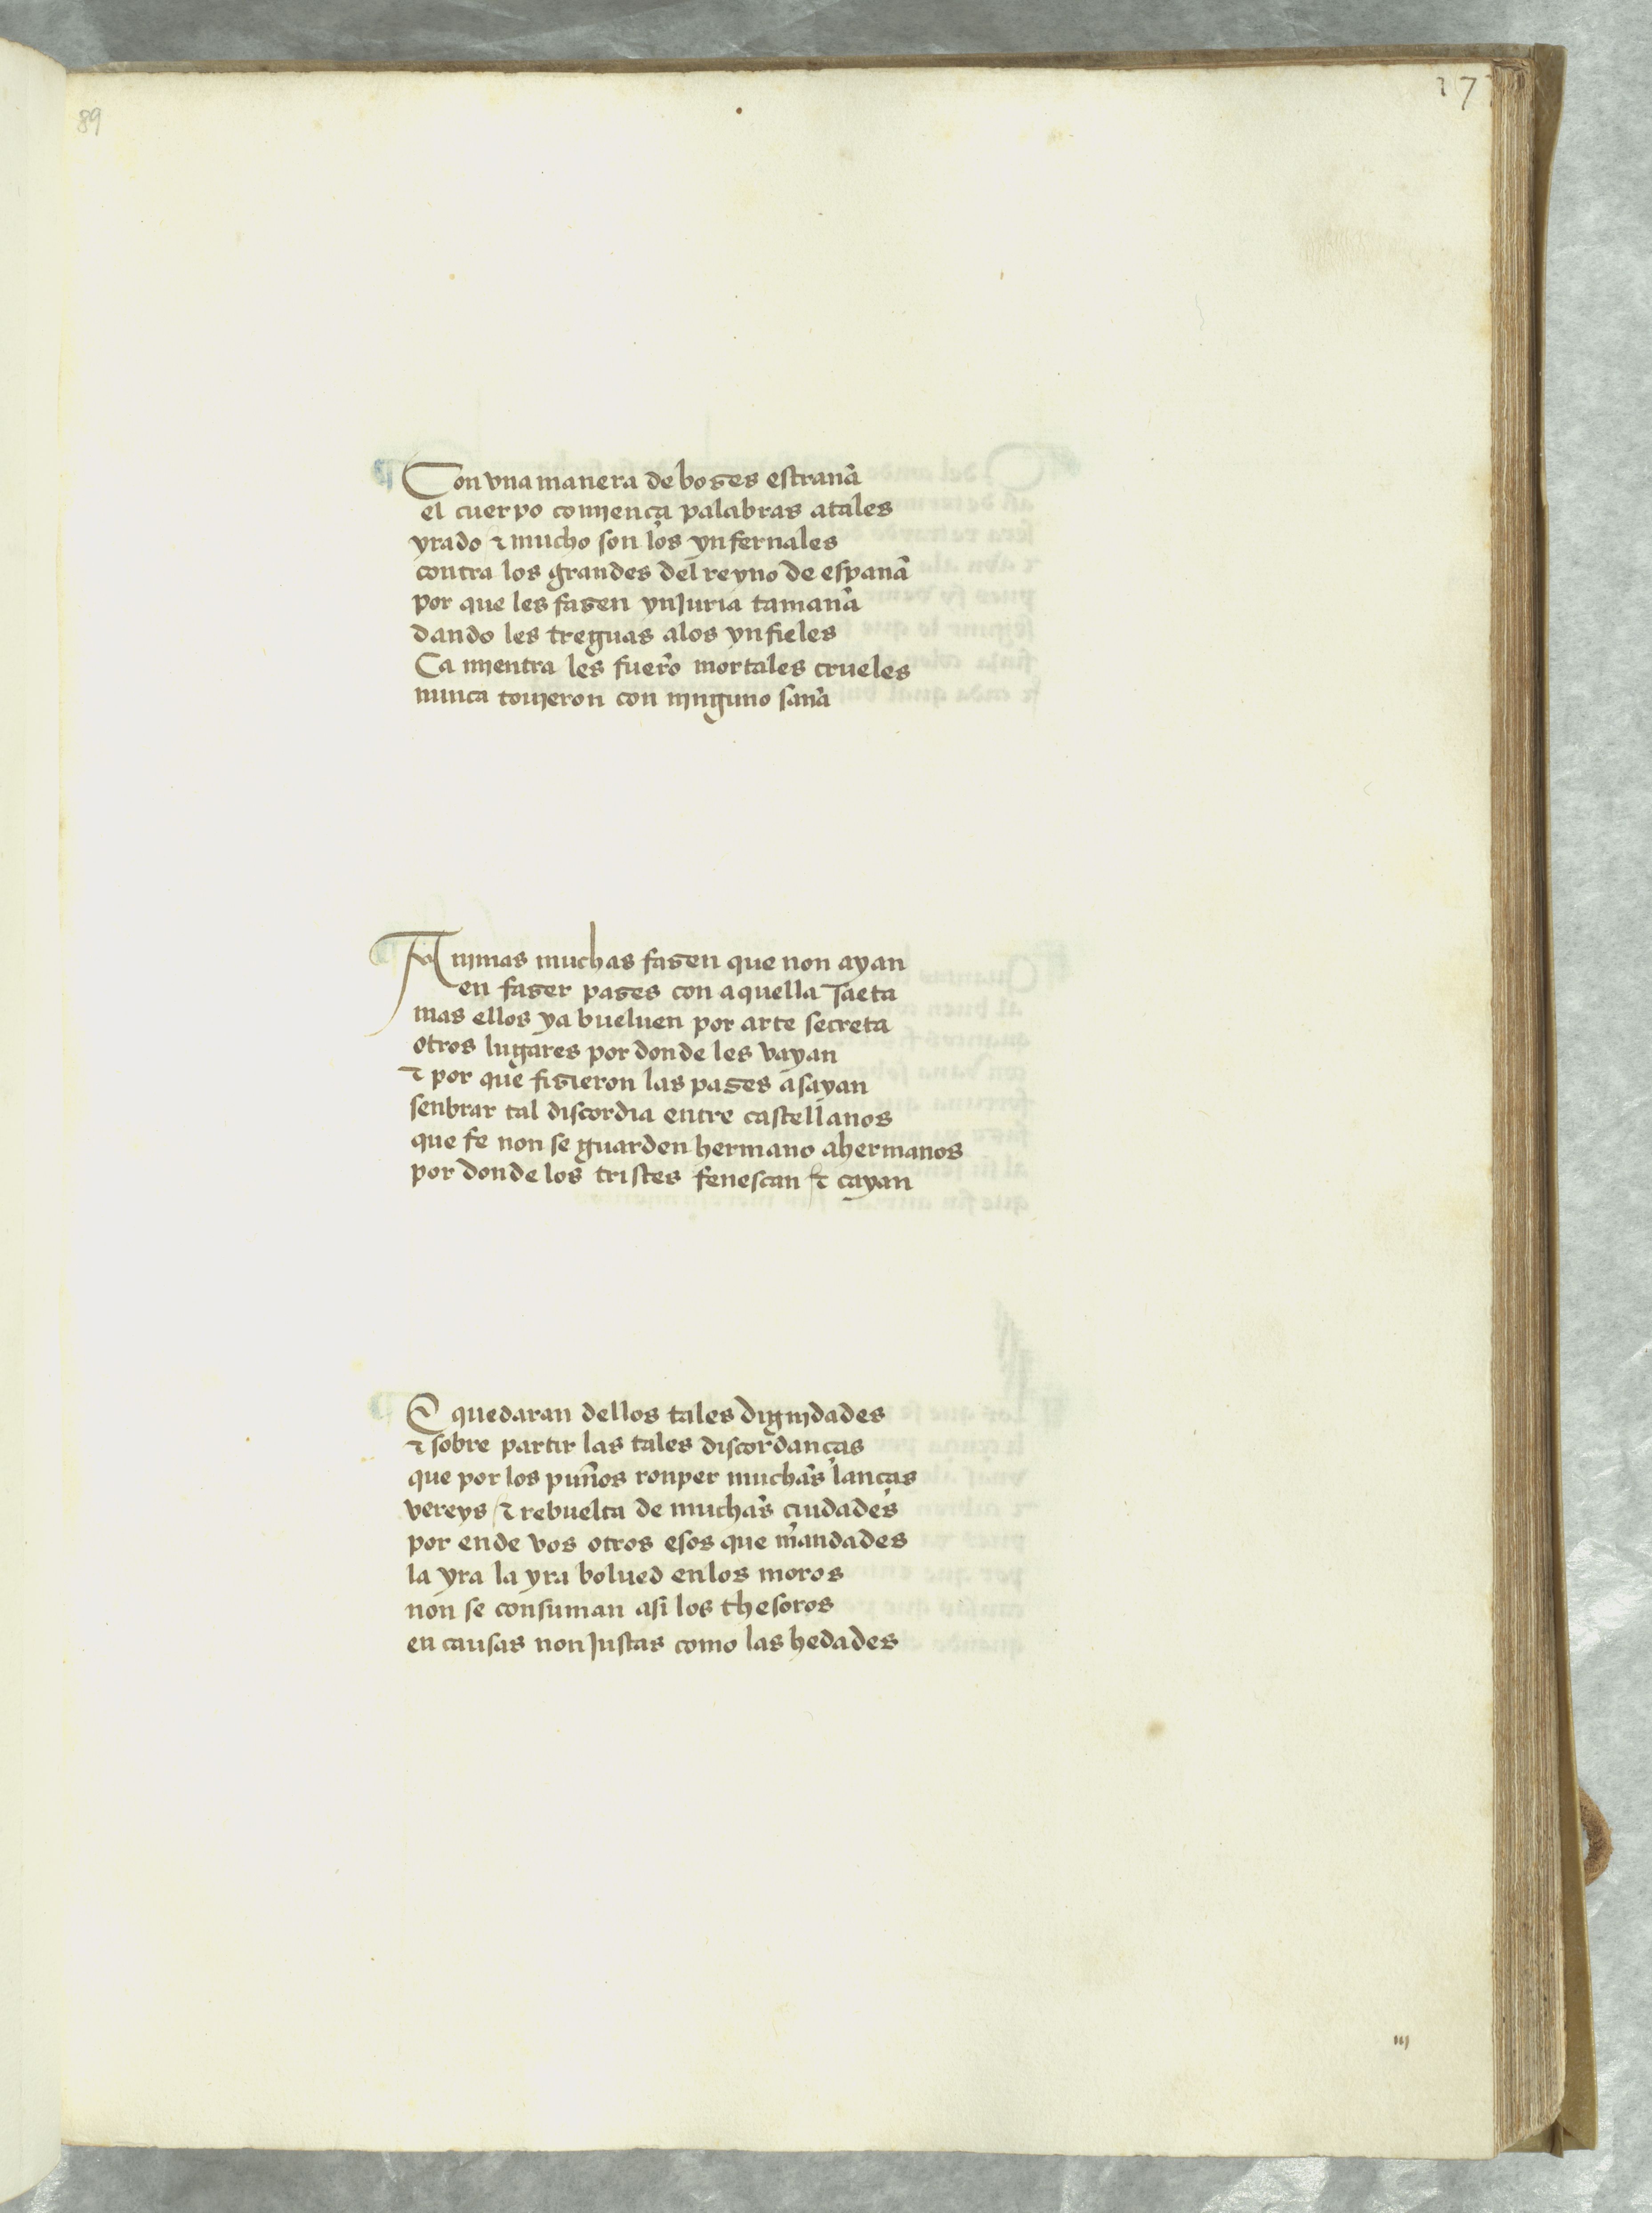 89
17
Con vna manera de bozes estrana᷉
el cuerpo comiença palabras atales
yrado ⁊ mucho son los ynfernales
contra los grandes del reyno de espana᷉
por que les fazen ynJuria tamana᷉
dando les treguas alos ynfieles
Ca mientra les fuero᷉ mortales crueles
nunca touieron con ninguno sana᷉
Animas muchas fazen que non ayan
en fazer pazes con aquella saeta
mas ellos ya bueluen por arte secreta
otros lugares por donde les vayan
⁊ por que fizieron las pazes asayan
senbrar tal discordia entre castellanos
que fe non se guarden hermano ahermanos
por donde los tristes fenescan ⁊ cayan
E quedaran dellos tales dignidades
⁊ sobre partir las tales discordanças
que por los pun᷉os ronper muchas lanças
vereys ⁊ rebuelta de muchas ciudades
por ende vos otros esos que mandades
la yra la yra bolued enlos moros
non se consuman asi los thesoros
en causas non Justas como las hedades
iij